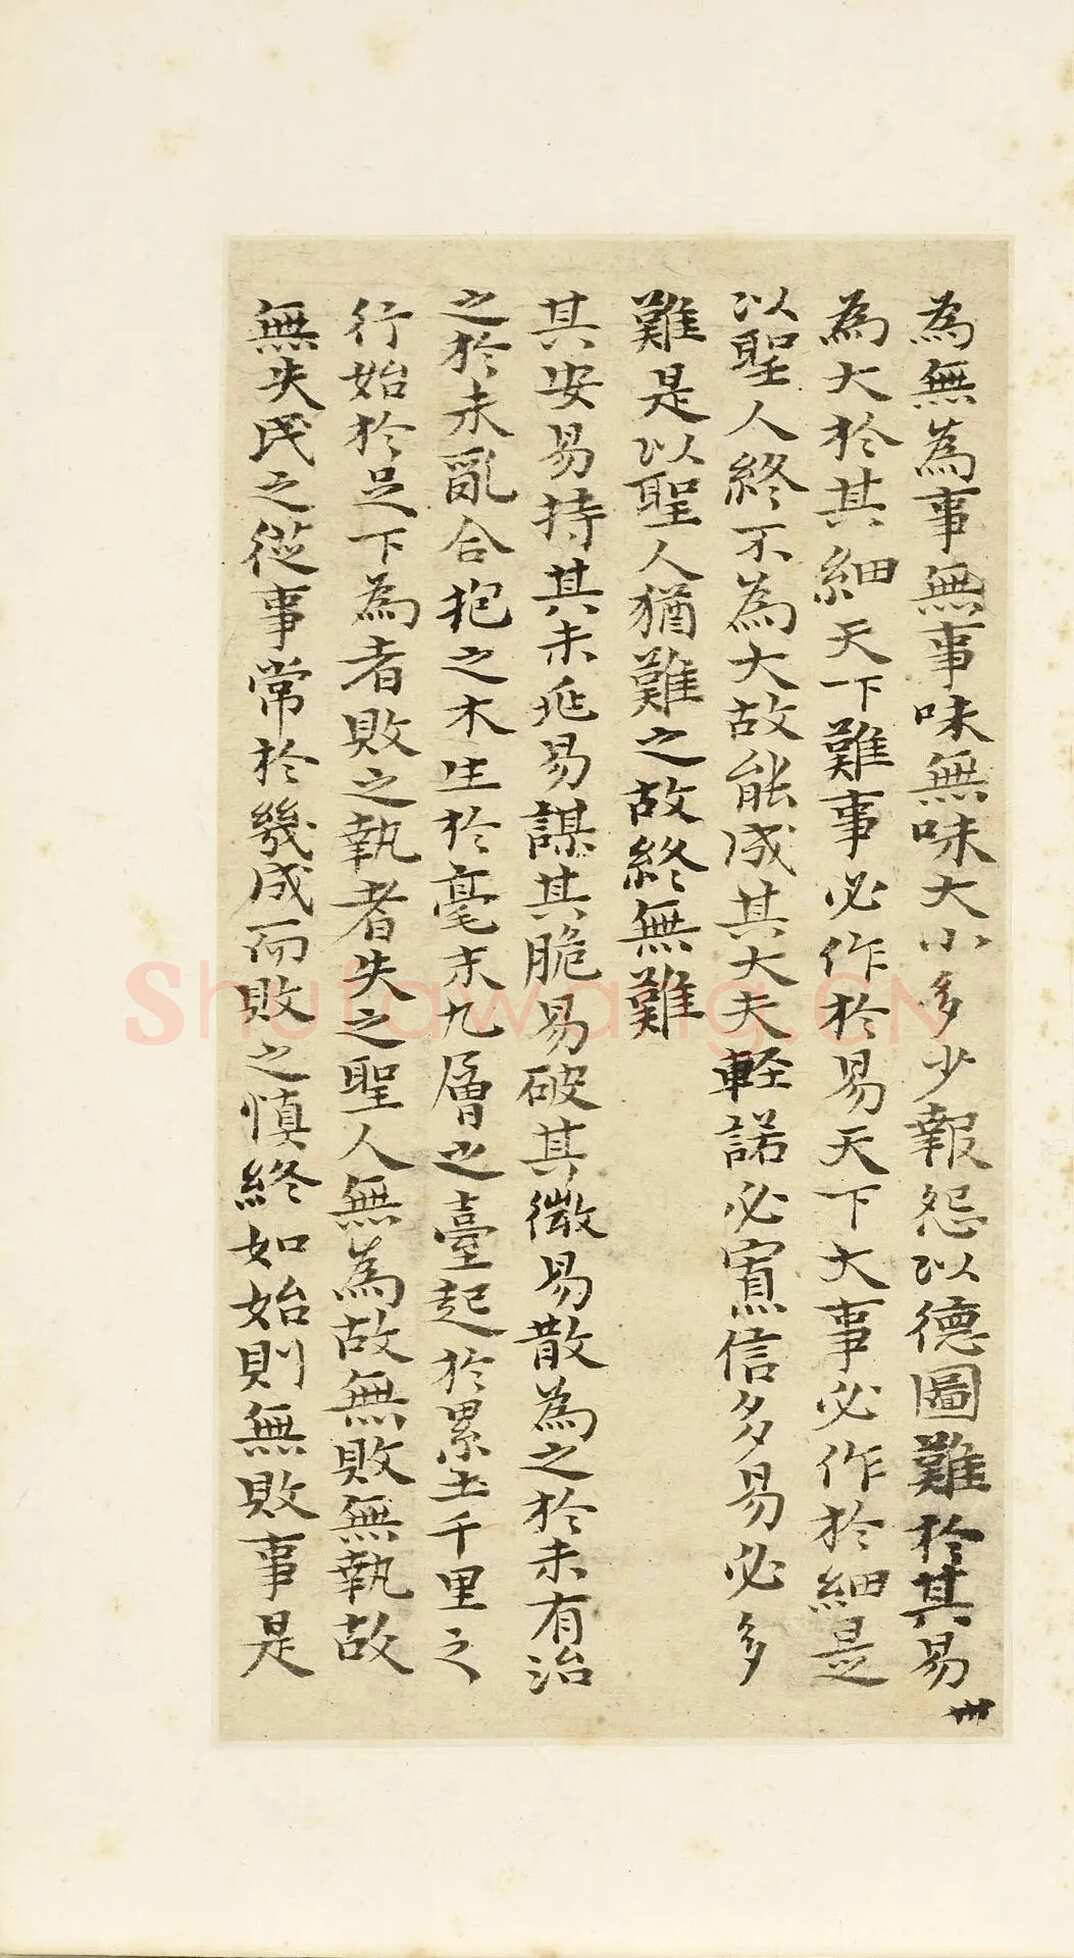 為無為事無事味無味大小多少報怨以德圖難於其易
為大於其細天下難事必作於易天下大事必作於細是
以聖人終不為大故能成其大夫輕諾必寡信多易必多
難是以聖人猶難之故終無難
其安易持其未兆易謀其脆易破其微易散為之於未有治
之於未亂合抱之木生於毫末九層之臺起於累土千里之
行始於足下為者敗之執者失之聖人無為故無敗無執故
無失民之從事常於幾成而敗之慎終如始則無敗事是
Shufawang.CN